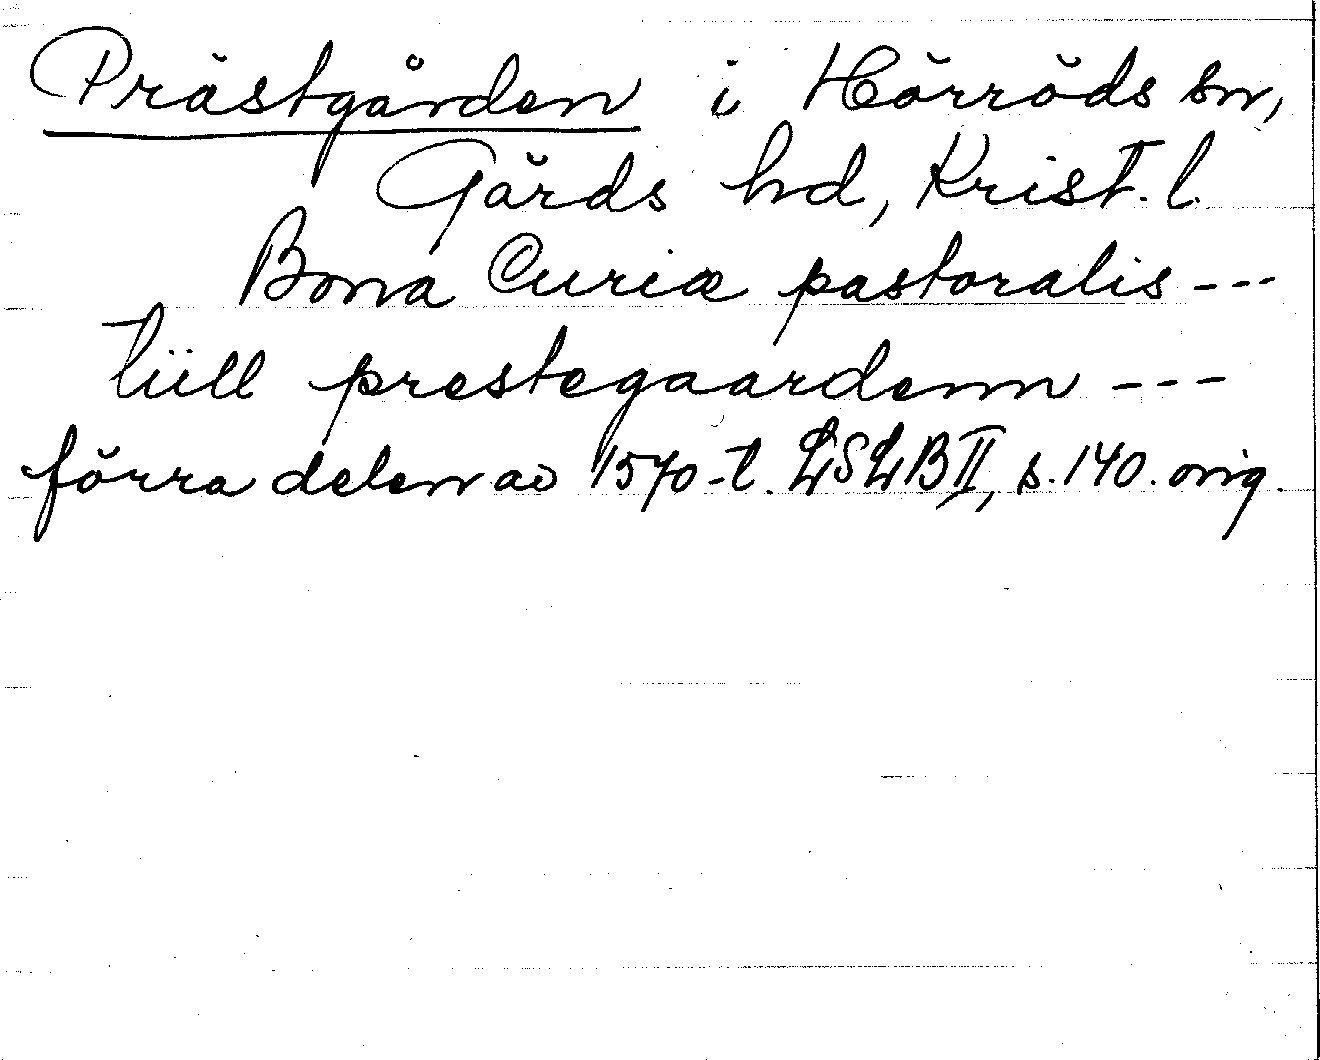 Prästgården i Hörröds sn,
Gärds hd, Krist. l.
Bona Curiæ pastoralis ---
tiill prestegaardenn ---
förra delen av 1570-t. LSLB II, s. 140. orig.